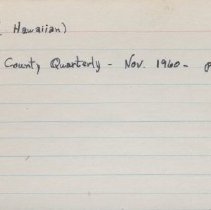 Hawaiian)
County Quarterly - Nov. 1960 -